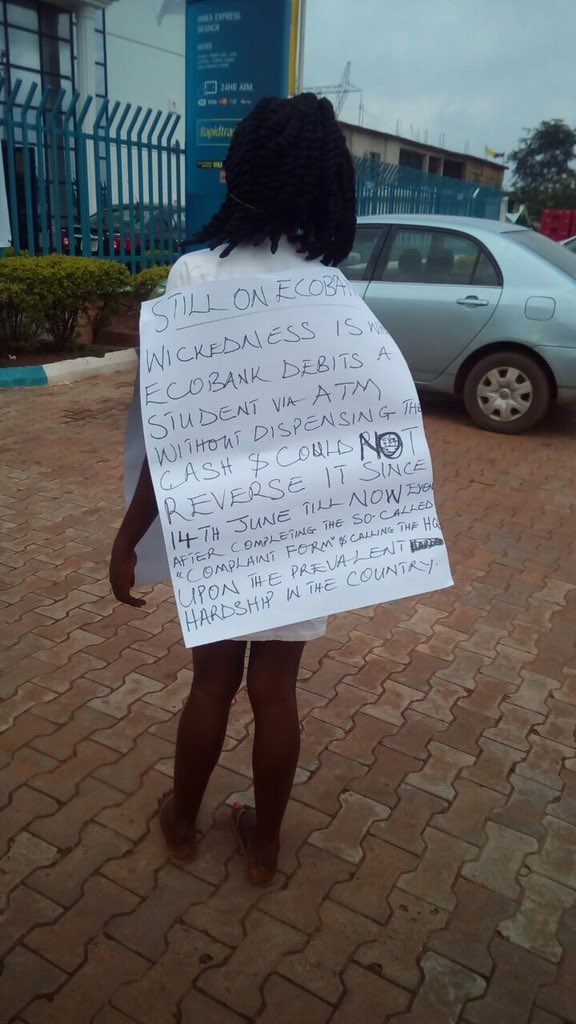 AREA EXPRESS
BRANCH
HOURS
24HR ATM
Rapidtra
STILL ON ECOBAN
WICKEDNESS IS WH
ECOBANK DEBITS A
STUDENT VIA ATM
WITHOUT DISPENSING THE
CASH & COULD NOT
REVERSE IT SINCE
14TH JUNE TILL NOW EVEN
AFTER COMPLETING THE SO-CALLED
"COMPLAINT FORM" & CALLING THE HQ
UPON THE PREVALENT
HARDSHIP IN THE COUNTRY.